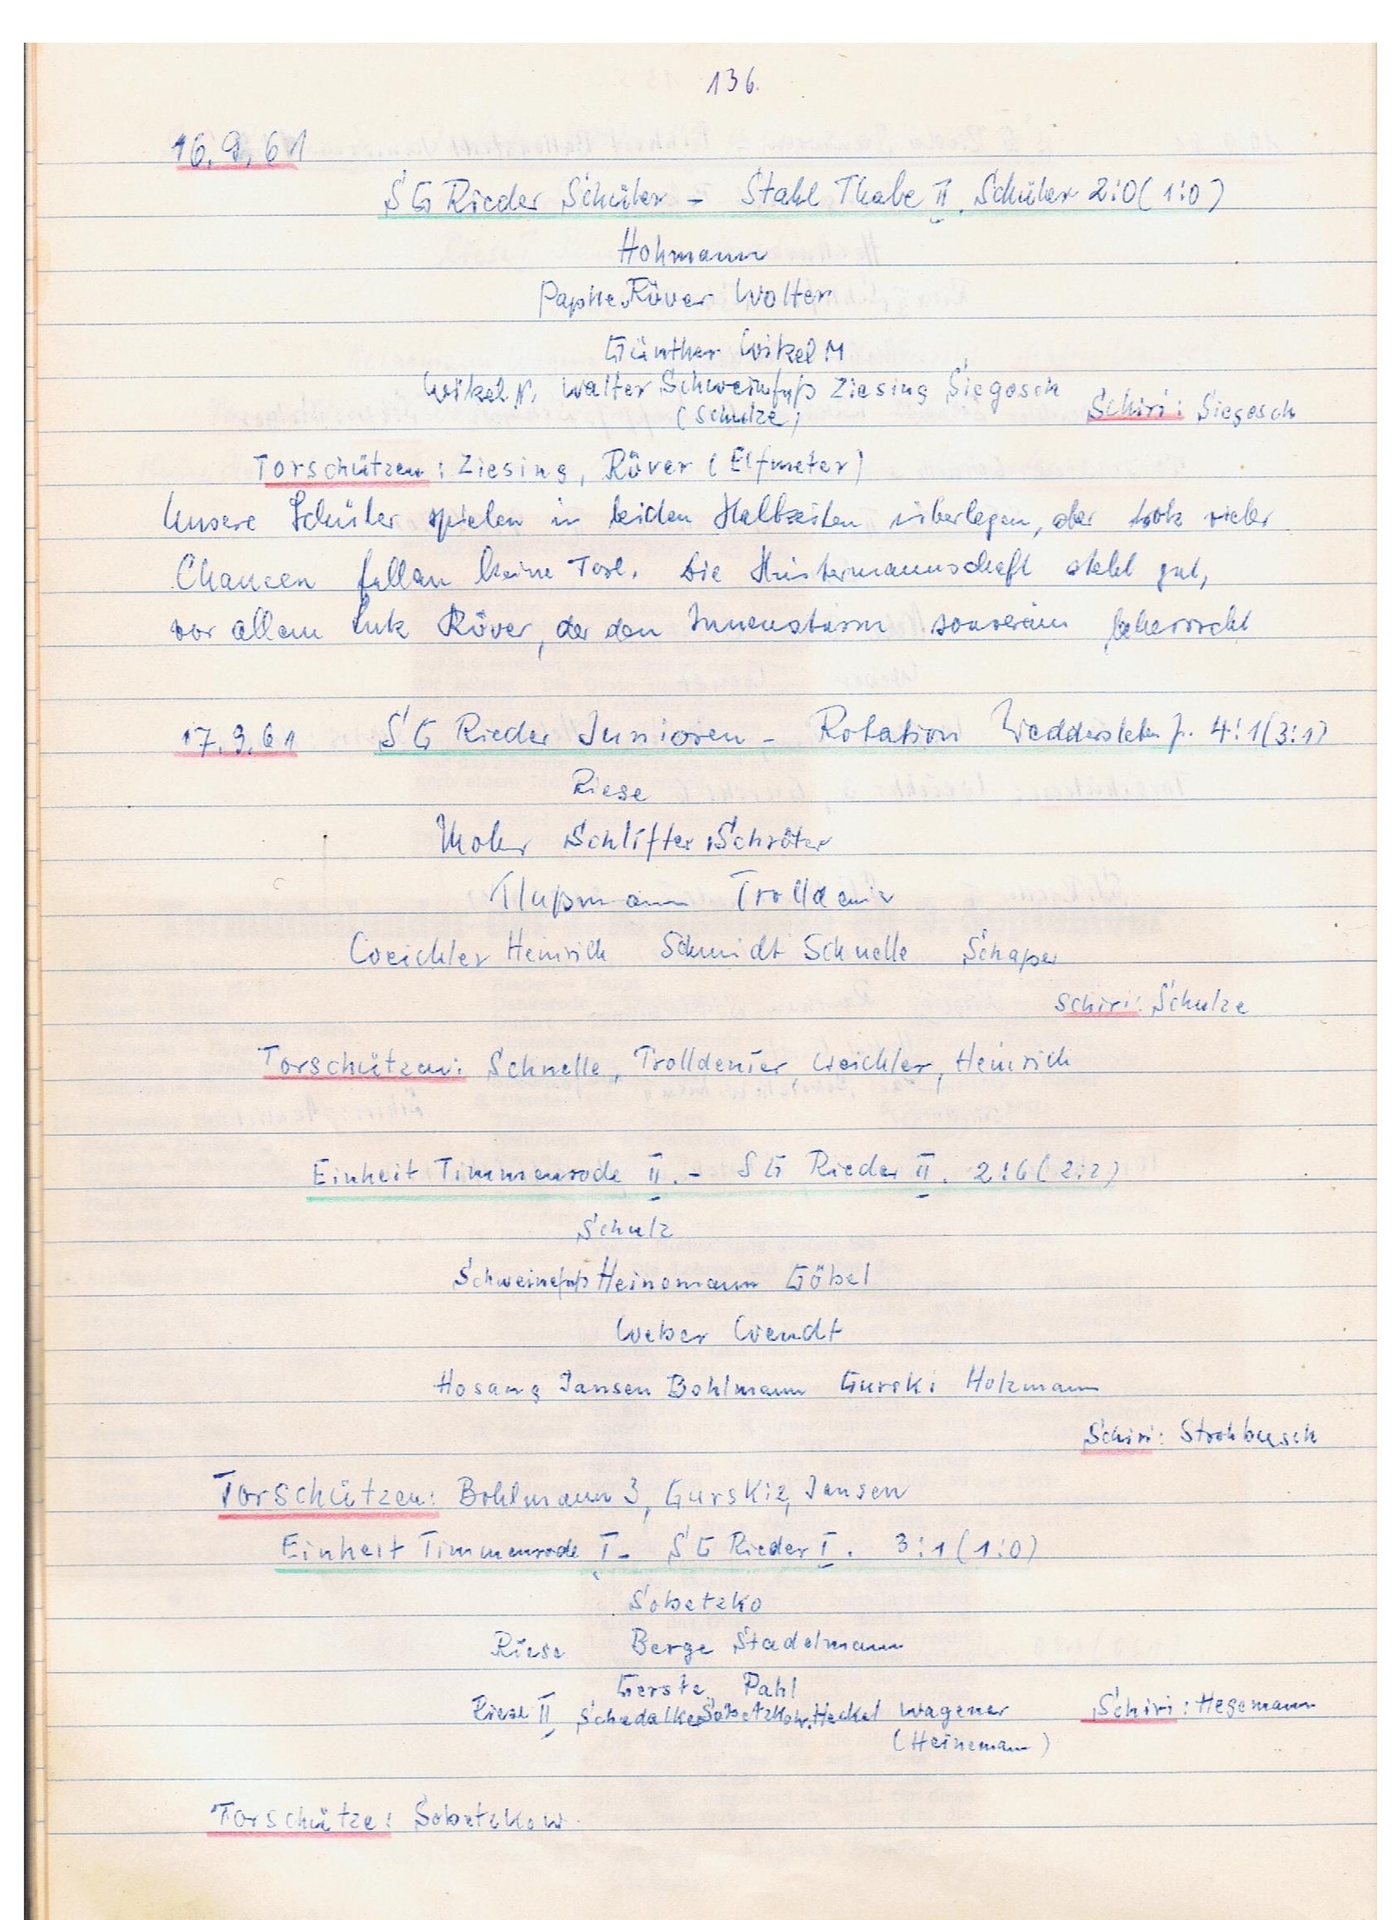 136.
16.9.61
SG Rieder Schüler - Stahl Thale II. Schüler 2:0 (1:0)
Hohmann
Paphe Röver Wolter
Günther Wikel M
Wikel N. Walter Schweinfuß Ziesing Siegosch
(Schulze)
Schiri: Siegosch
Torschützen: Ziesing, Röver (Elfmeter)
Unsere Schüler spielen in beiden Halbzeiten überlegen, aber trotz vieler
Chancen fallen keine Tore. Die Hintermannschaft steht gut,
vor allem Lutz Röver, der den Innensturm souverän beherrscht
17.9.61 SG Rieder Junioren - Rotation Weddersleben J. 4:1 (3:1)
Riese
Mohr Schlifter Schröter
Klußmann Trolldenier
Weichler Heinrich Schmidt Schnelle Schaper
Schiri: Schulze
Torschützen: Schnelle, Trolldenier Weichler, Heinrich
Einheit Timmenrode II. - SG Rieder II. 2:6 (2:2)
Schulz
Schweinefuß Heinemann Göbel
Weber Wendt
Hosang Jansen Bohlmann Gurski Holzmann
Schiri: Strohbusch
Torschützen: Bohlmann 3, Gurski 2, Jansen
Einheit Timmenrode I - SG Rieder I. 3:1 (1:0)
Sobetzko
Riese Berge Stadelmann
Gerste Pahl
Riese II Schedalke Sobetzko W. Heckel Wagener Schiri: Hegemann
(Heinemann)
Torschütze: Sobetzko W.